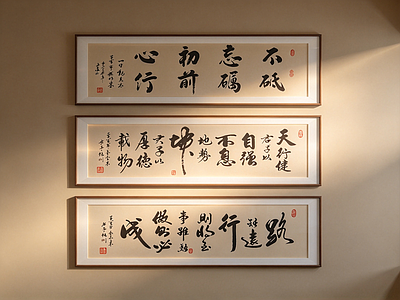 不忘初心
砥礪前行
天行健
君子以
自强
不息
地勢
坤
君子以
厚德
載物
路
雖遠
行
則將至
事雖難
做則必
成